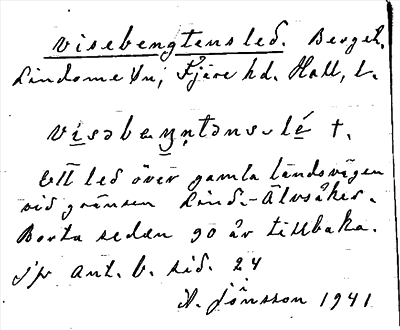 Visebengtens led. Bergek.
Lindome sn, Fjäre hd. Hall. l.
vi̲səbæŋ̲ntəns-lé̲ t.
Ett led över gamla landsvägen
vid gränsen Lind.-Älvsåker.
Borta sedan 90 år tillbaka.
Jfr ant. b. sid. 24
A. Jönsson 1941